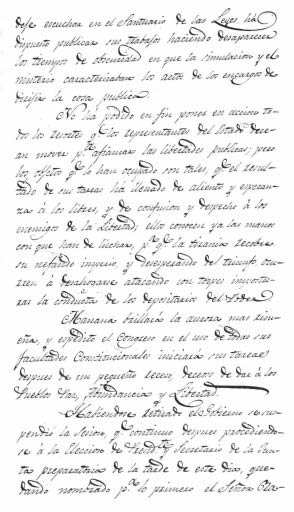 dese escuchar en el Santuario de las Leyes, há
dispuesto publicar sus trabajos haciendo desaparecer
los tiempos de obscuridad en que la simulacion y el
misterio caracterizaban los actos de los encargos de
dirijir la cosa publica.
No há podido en fin poner en accion to-
dos los resortes q.e los representantes del Estado de-
ran mover p.a afianzar las libertades publicas; pero
los objetos q.e la han ocupado son tales, q.e el resul-
tado de sus tareas há llenado de aliento y esperan-
za á los libres, y de confusion y despecho á los
enemigos de la Libertad; ellos conocen ya las manos
con que han de luchar, p.a q.e la tirania recobre
su nefando imperio, y desesperando del triunfo ocu-
rren á desahogarse atacando con torpes impostu-
ras la conducta de los depositarios del Poder
Mañana brillará la aurora mas risu-
eña, y espedito el Congreso en el uso de todas sus
facultades Constitucionales iniciará sus tareas
despues de un pequeño receso, deseoso de dar á los
Pueblos Paz, Abundancia y Libertad.
Habiendose retirado el Gobierno se sus-
pendió la Sesion, q.e continuó despues procediendo-
se á la eleccion de Presid.te y Secretario de la Jun-
ta preparatoria de la tarde de este dia, que-
dando nombrado p.a lo primero el Señor Ola-